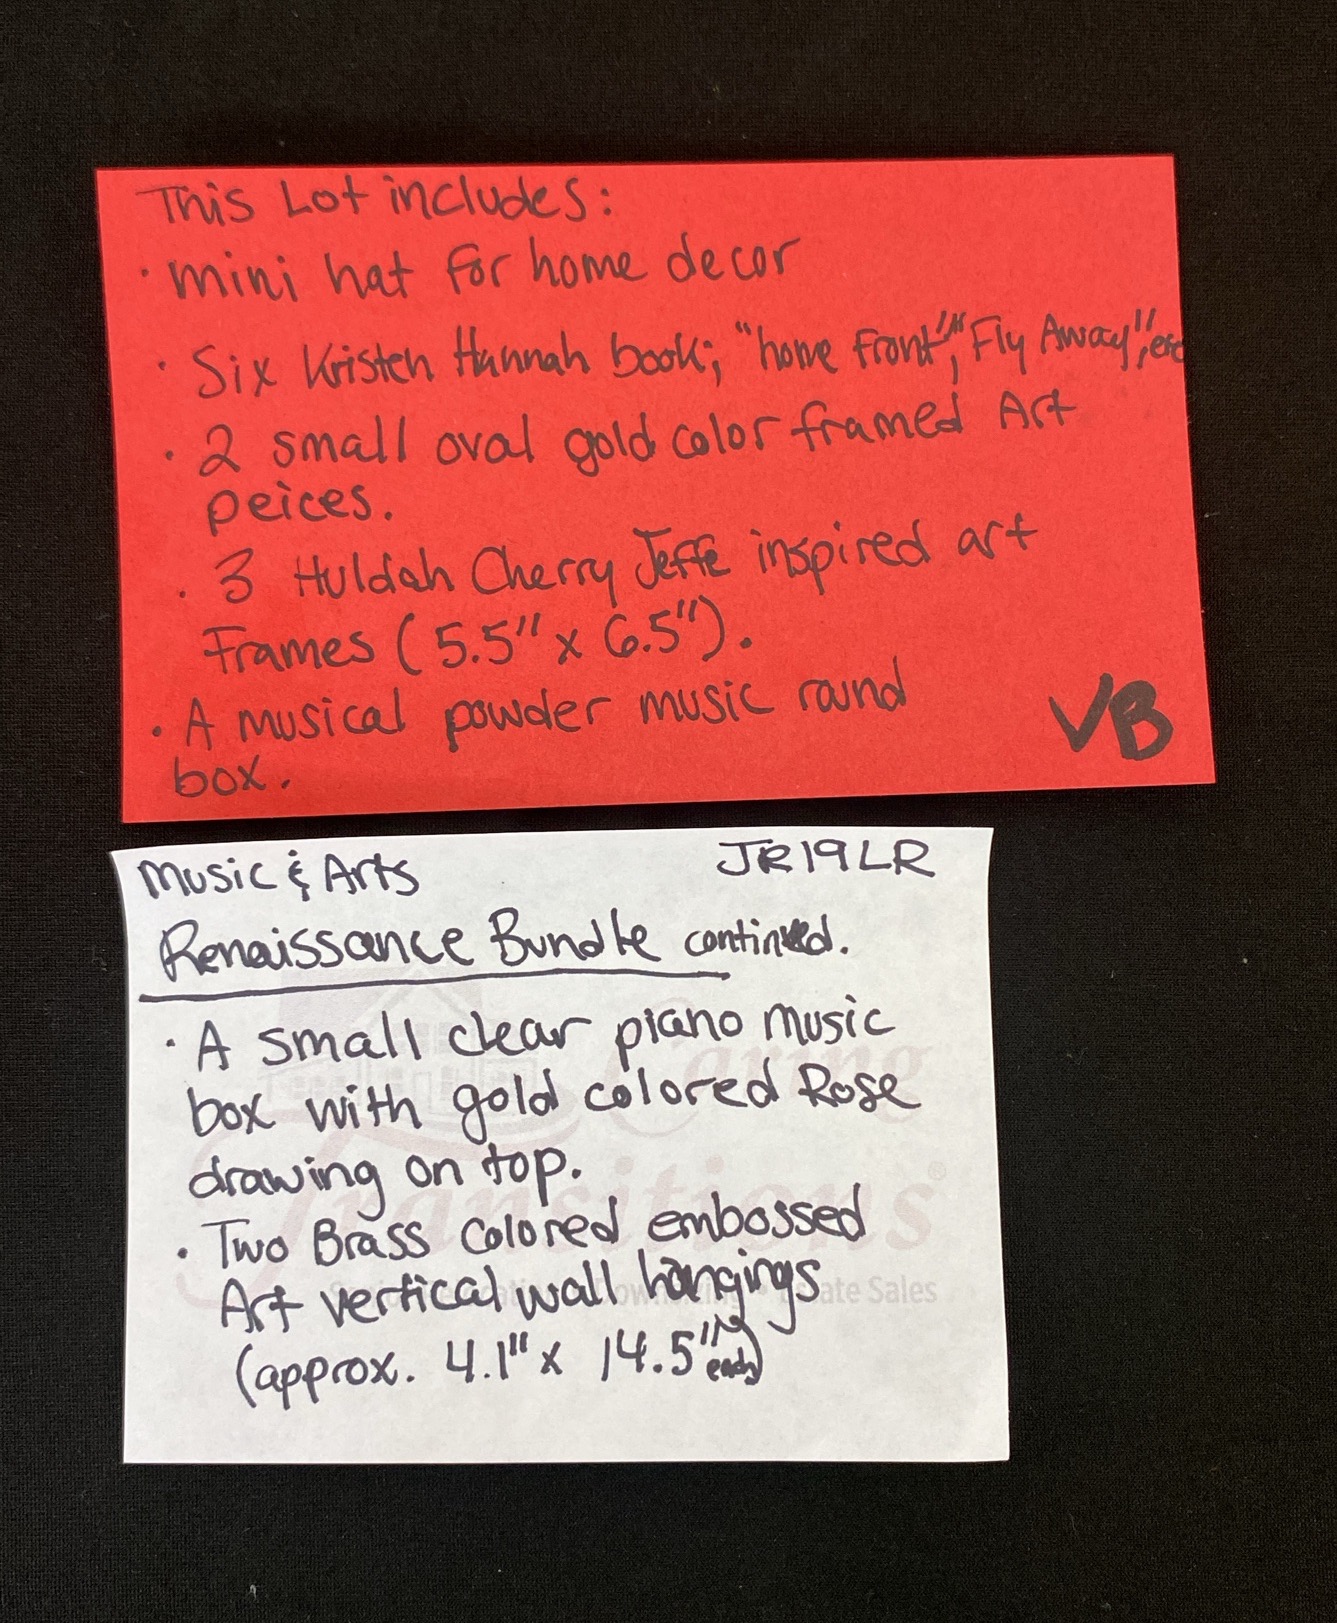 This Lot includes:
· mini hat for home decor
· Six Kristen Hannah book; "home front", "Fly Away", etc
· 2 small oval gold color framed Art
peices.
· 3 Huldah Cherry Jeffe inspired art
Frames (5.5" x 6.5").
· A musical powder music round
box.
VB
Music & Arts JR19LR
Renaissance Bundle continued.
· A small clear piano music
box with gold colored Rose
drawing on top.
· Two Brass colored embossed
Art vertical wall hangings
(approx. 4.1" x 14.5" each)
Caring
Transitions®
Estate Sales